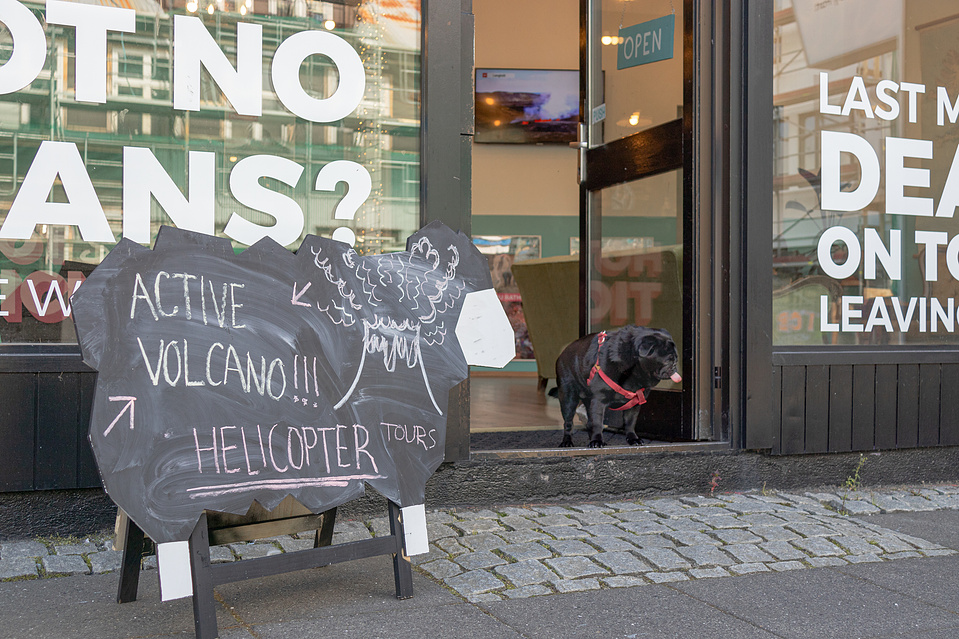 OT NO
ANS?
E W
OPEN
LAST M
DEA
ON TO
LEAVING
ACTIVE
VOLCANO!!!
HELICOPTER TOURS